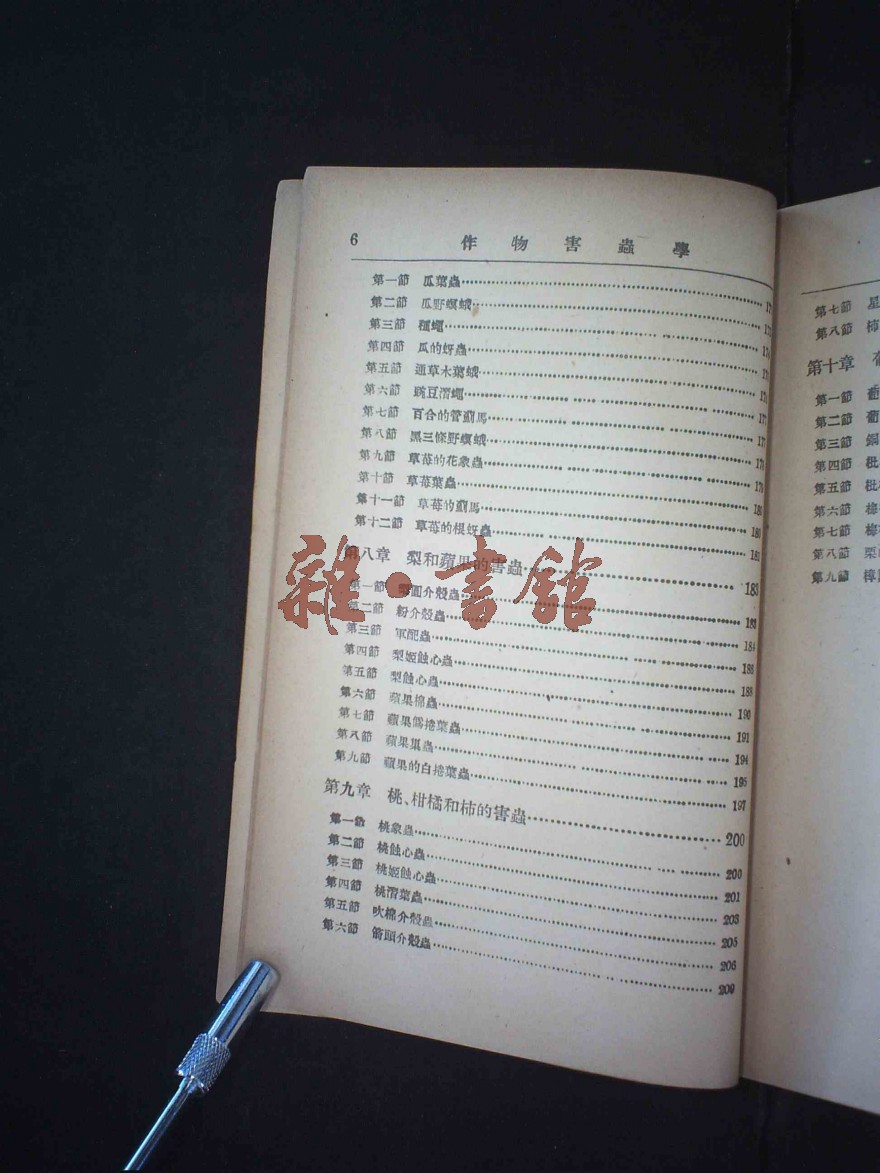 6 作物害蟲學
第一節 瓜葉蟲
第二節 瓜野螟蛾
第三節 種蠅
第四節 瓜的蚜蟲
第五節 通草木葉蛾
第六節 豌豆潛蠅
第七節 百合的管薊馬 177
第八節 黑三條野螟蛾 177
第九節 草莓的花象蟲
第十節 草莓葉蟲 179
第十一節 草莓的薊馬 180
第十二節 草莓的根蚜蟲 180
181
第八章 梨和蘋果的害蟲 183
第一節 梨圓介殼蟲 183
第二節 粉介殼蟲 184
第三節 軍配蟲 186
第四節 梨姬蝕心蟲 188
第五節 梨蝕心蟲 190
第六節 蘋果棉蟲 191
第七節 蘋果傴捲葉蟲 194
第八節 蘋果巢蟲 195
第九節 蘋果的白捲葉蟲 197
第九章 桃、柑橘和柿的害蟲 200
第一節 桃象蟲 200
第二節 桃蝕心蟲 201
第三節 桃姬蝕心蟲 203
第四節 桃潛葉蟲 205
第五節 吹棉介殼蟲 206
第六節 箭頭介殼蟲 209
雜·書館
第七節 星
第八節 柿
第十章
第一節
第二節 葡
第三節 銅
第四節 枇
第五節 枇
第六節
第七節
第八節 栗
第九節 樟